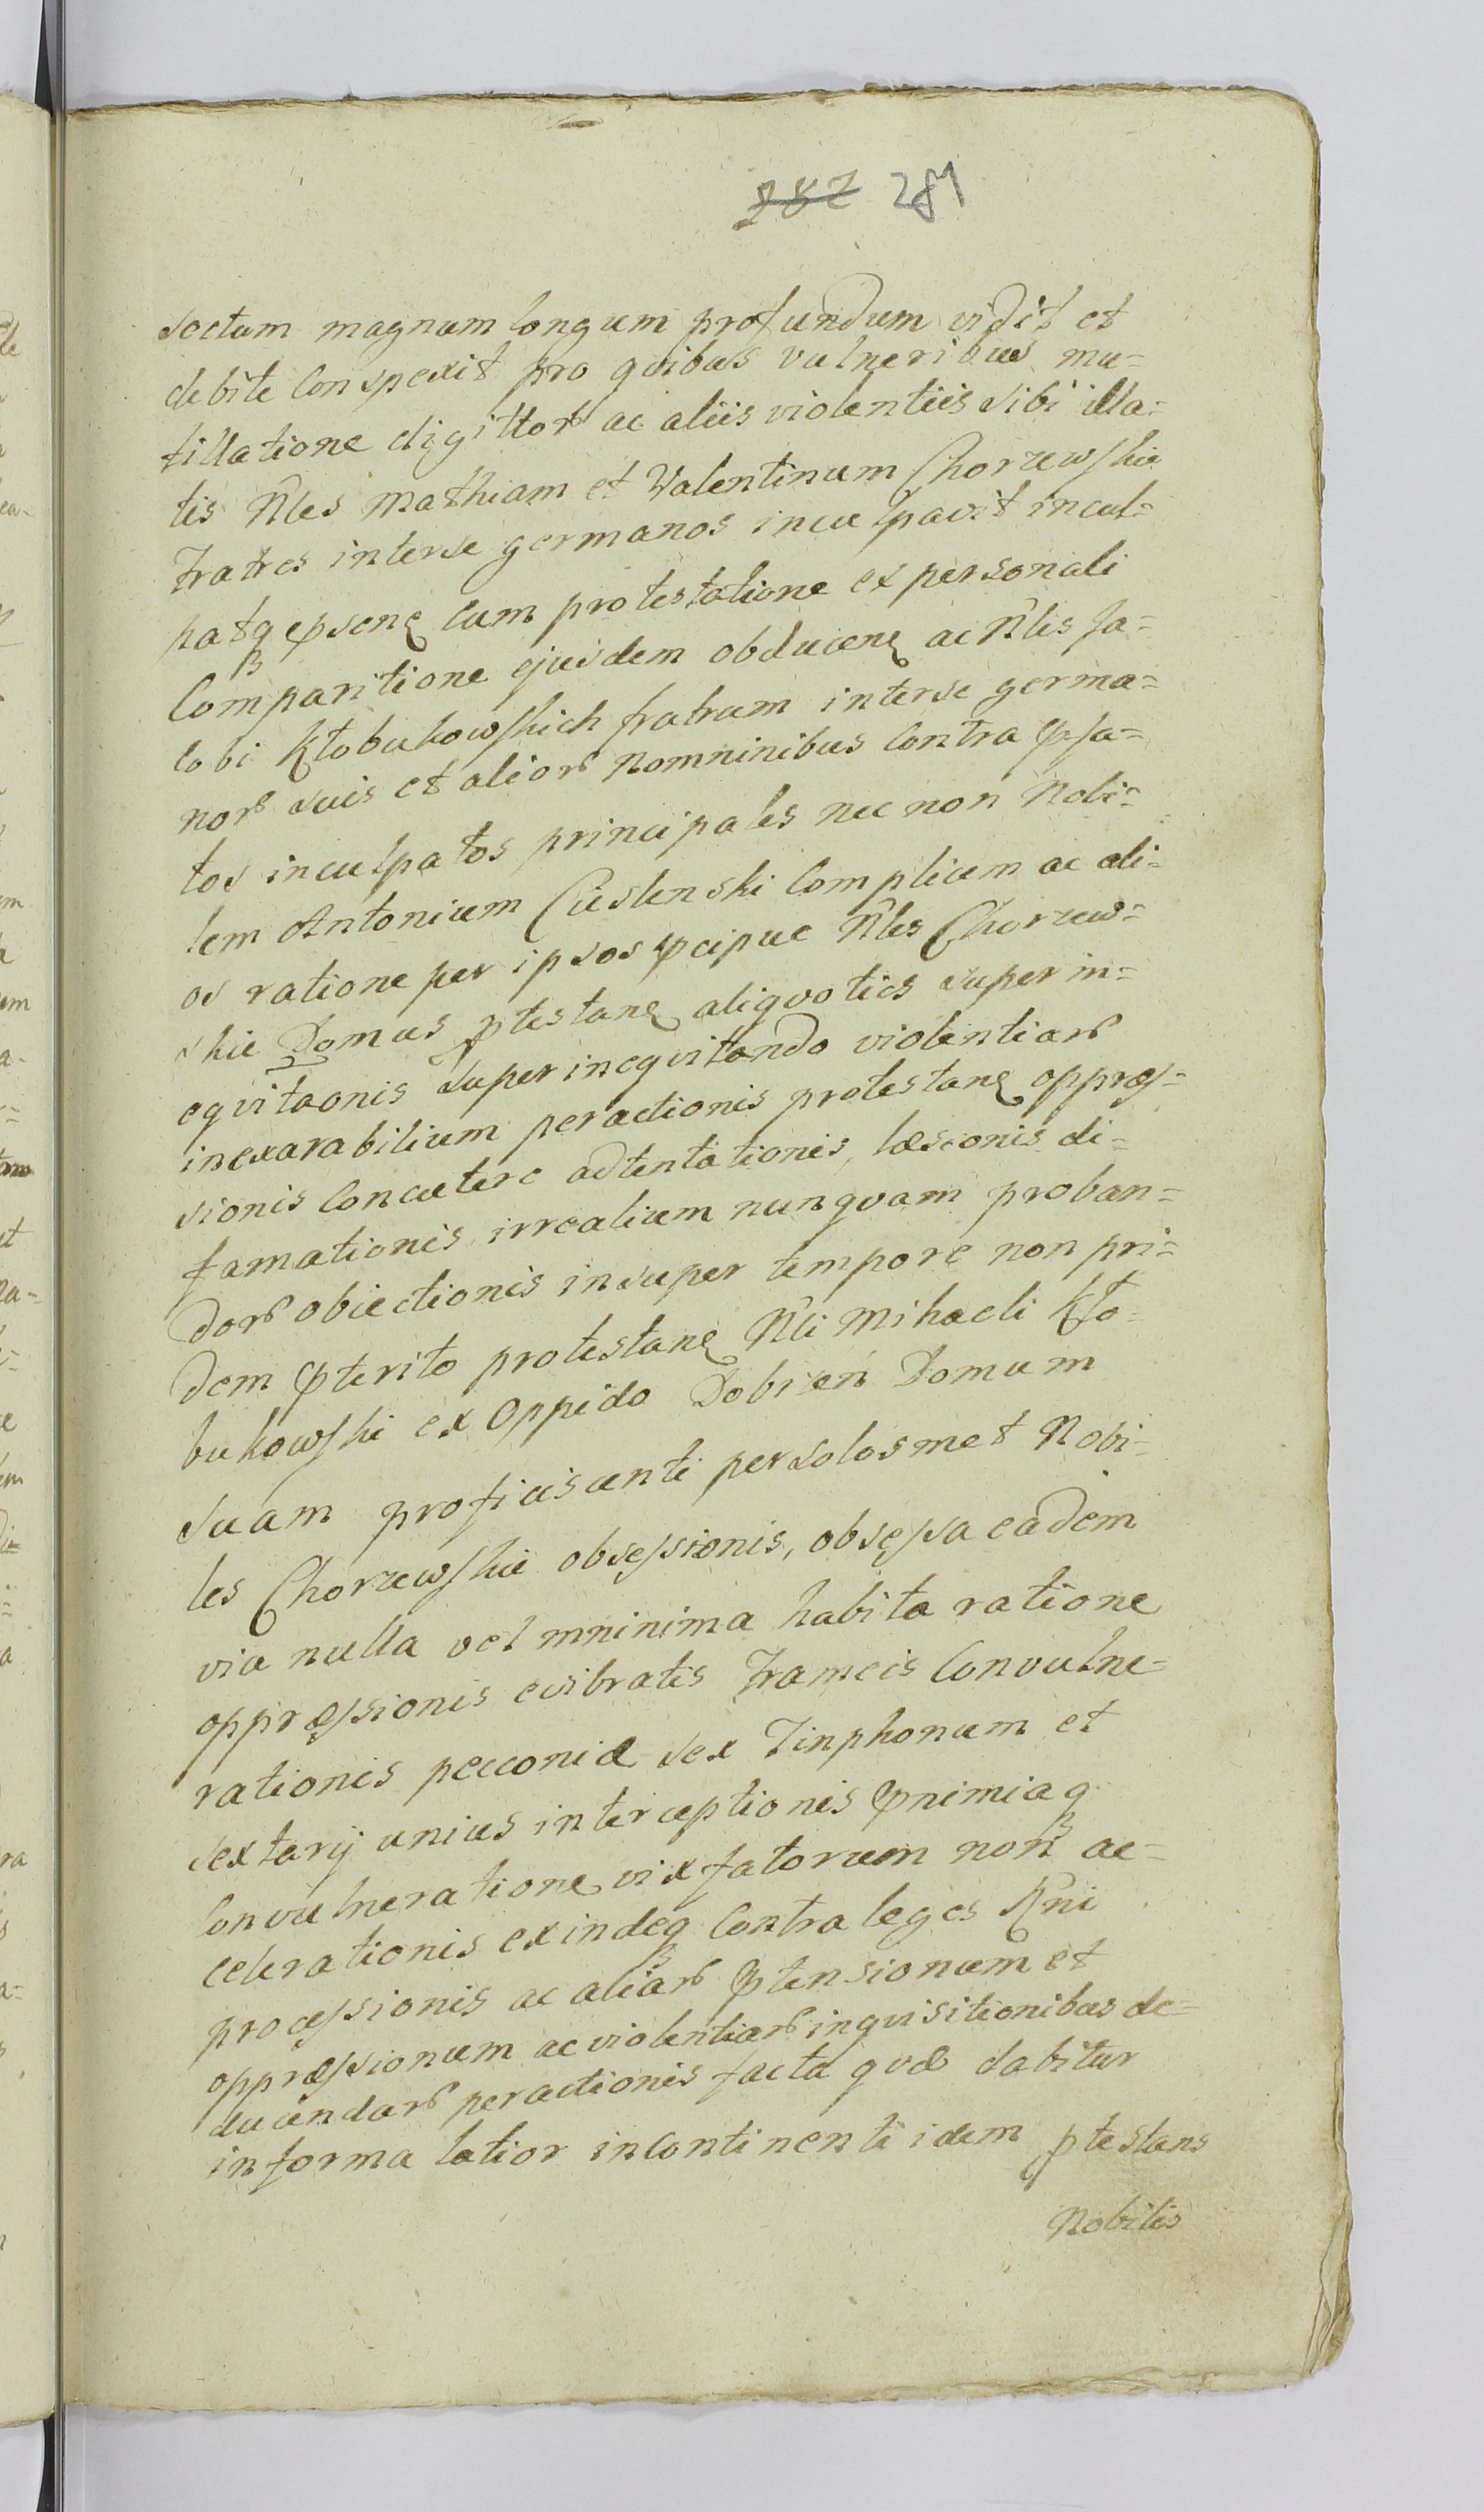 282 281
sectum magnum longum profundum vidit et
debite Conspexit pro quibus vulneribus mu=
tillatione digittorꝝ ac aliis violentiis sibi illa=
tis Nles Mathiam et Valentinum Chorzewskie
Fratres interse germanos inculpavit incul=
patqꝫ ꝑsenꝭ Cum protestatione ex personali
Comparitione ejusdem obducenꝭ ac Nlis Ja=
cobi Kłobukowskich fratrum interse germa=
norꝝ suis et aliorꝝ Nomninibus Contra ꝑfa=
tos inculpatos principales nec non Nobi=
lem Antonium Cieslenski Complicem ac ali=
os ratione per ipsos ꝑcipue Nles Chorzew=
skie Domus ꝓtestanꝭ aliquoties superin=
equitaonis superinequitando violentiarꝝ
inexarabilium peractionis protestanꝭ oppræs=
sionis Concutere adtentationis, læsionis di=
famationis irrealium nunquam proban=
dorꝝ obiectionis insuper tempore non pri=
dem ꝑterito protestanꝭ Nli Mihaeli Kło=
bukowski ex Oppido Dobień Domum
suam proficiscenti per solosmet Nobi=
les Chorzewskie obsessionis, obsessa eadem
via nulla vel mninima habita ratione
oppræssionis evibratis Frameis Convulne=
rationis pecconiæ sex Tinphonum et
sextarij unius interceptionis ꝑnimiaqꝫ
Convulneratione vix fatorum non ac=
celerationis exindeqꝫ Contra leges Rni
processionis ac aliarꝝ ꝑtensionum et
oppræssionum ac violentiarꝝ inquisitionibus de=
ducendarꝝ peractionis facta quæ dabitur
informa latior inContinenti idem ꝓtestans
Nobilis